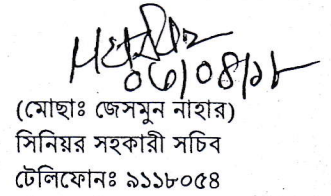 ০৬/০৪/১৮
(মোছাঃ জেসমুন নাহার)
সিনিয়র সহকারী সচিব
টেলিফোনঃ ৯১১৮০৫৪